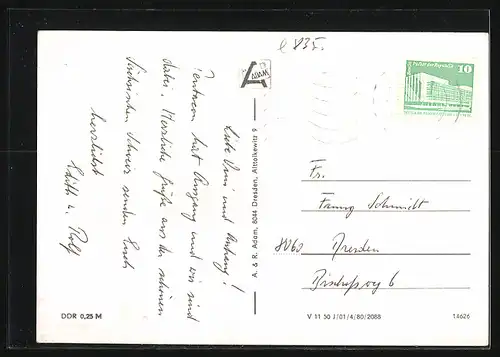 e 835.
Palast der Republik
10
ADAM
Liebe Omi und Anhang!
hat Ausgang und wir sind
dabei. Herzliche Grüße aus der schönen
Sächsischen Schweiz senden Euch
herzlichst
Edith u. Rolf
A. & R. Adam, 8044 Dresden, Alttolkewitz 9
Fr.
Schmidt
8060 Dresden
Bischofsweg 6
DDR 0,25 M
V 11 50 J/01/4/80/2088
14626